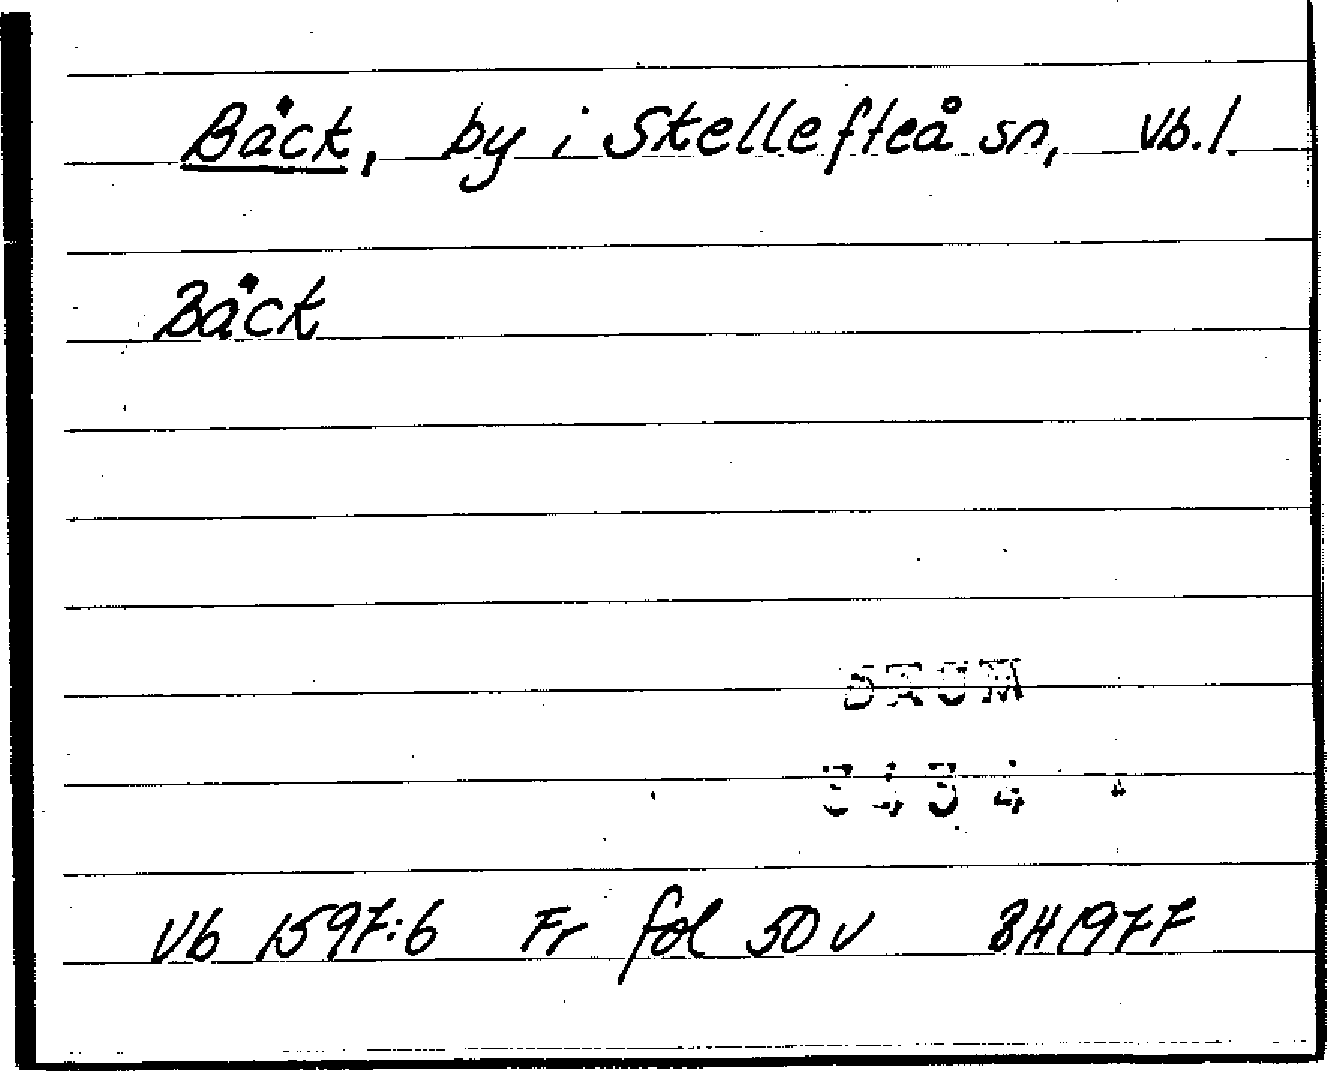 Bäck, by i Skellefteå sn, Vb.l.
Bäck
Vb 1597:6 Fr fol 50 v BH1977